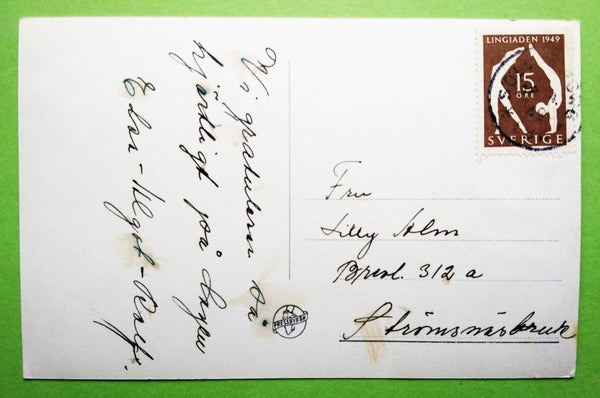 Vi gratulera så
hjärtligt på dagen
Elsa - Algot - Rolf.
LINGIADEN 1949
15
ÖRE
SVERIGE
Fru
Lilly Alm
Brevl. 312 a
Strömsnäsbruk